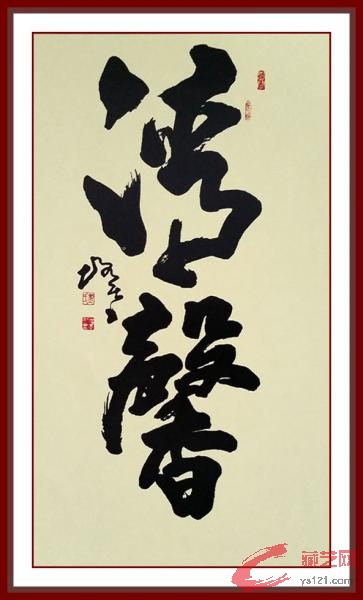 德馨
藏艺网
ys121.com